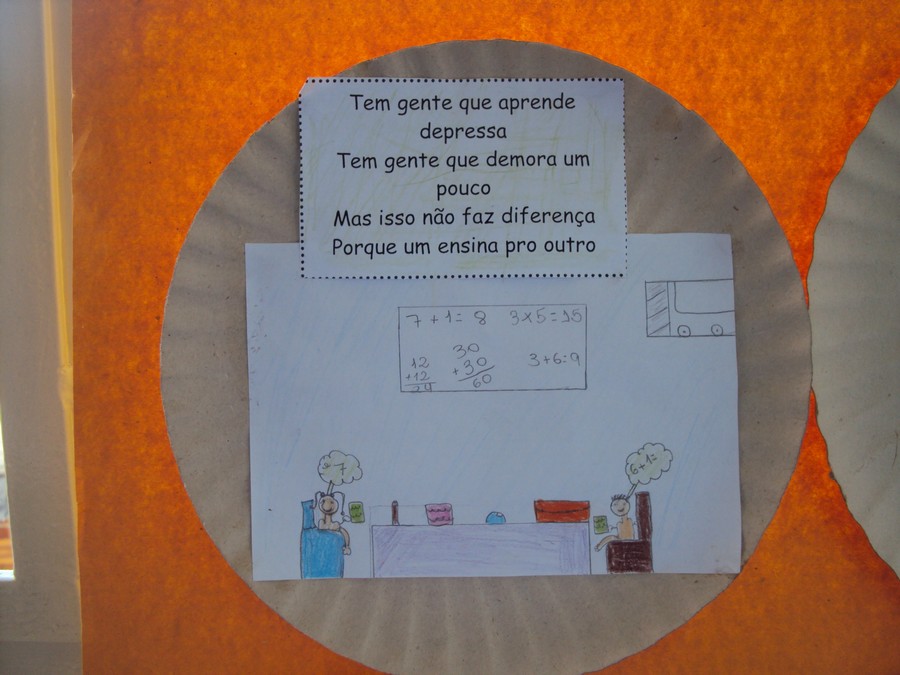 Tem gente que aprende
depressa
Tem gente que demora um
pouco
Mas isso não faz diferença
Porque um ensina pro outro
7 + 1 = 8 3x5=15
12 30
+12 +30 3+6=9
24 60
= 7 6+1=